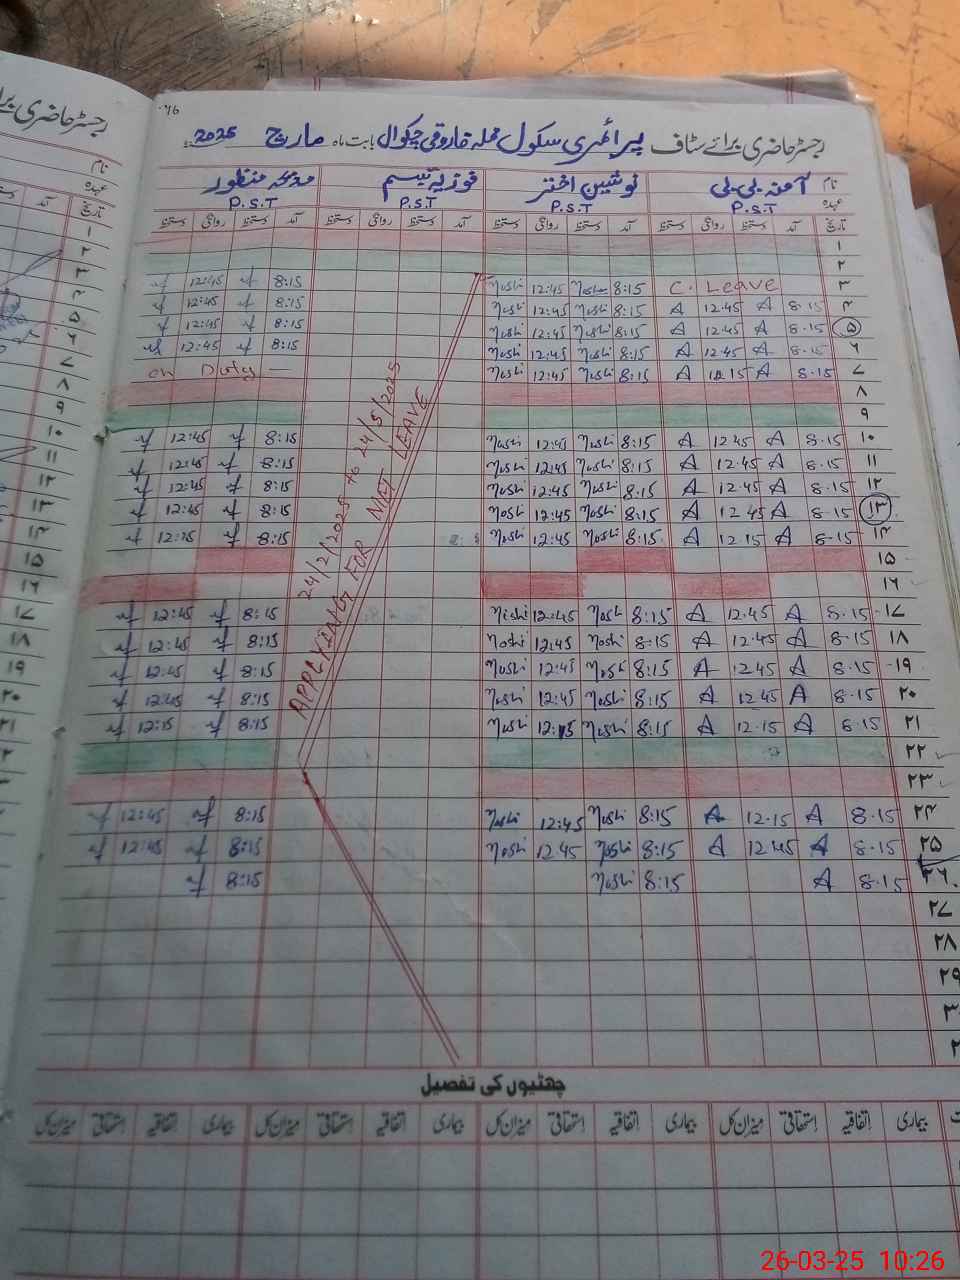 76
رجسٹر حاضری برائے سٹاف پرائمری سکول محلہ فاروقی چکوال بابت ماہ مارچ 2025ء
نام آمنہ بی بی نوشین اختر فوزیہ تبسم مدیحہ منظور
عہدہ P.S.T P.S.T P.S.T P.S.T
تاریخ آمد دستخط روانگی دستخط آمد دستخط روانگی دستخط آمد دستخط روانگی دستخط آمد دستخط روانگی دستخط
۱
۲
۳ C. Leave 8:15 Noshi 12:45 Noshi 8:15 12:45
۴ 8.15 A 12.45 A 8:15 Noshi 12:45 Noshi 8:15 12:45
۵ 8.15 A 12.45 A 8:15 Noshi 12:45 Noshi 8:15 12:45
۶ 8.15 A 12.45 A 8:15 Noshi 12:45 Noshi 8:15 12:45
۷ 8.15 A 12 15 A 8:15 Noshi 12:45 Noshi on Duty —
۸
۹
۱۰ 8.15 A 12.45 A 8:15 Noshi 12:45 Noshi 8:15 12:45
۱۱ 8.15 A 12.45 A 8:15 Noshi 12:45 Noshi 8:15 12:45
۱۲ 8.15 A 12.45 A 8:15 Noshi 12:45 Noshi 8:15 12:45
۱۳ 8.15 A 12.45 A 8:15 Noshi 12:45 Noshi 8:15 12:45
۱۴ 8.15 A 12.15 A 8:15 Noshi 12:45 Noshi 8:15 12:15
۱۵
۱۶
۱۷ 8.15 A 12.45 A 8:15 Noshi 12:45 Noshi 8:15 12:45
۱۸ 8.15 A 12.45 A 8:15 Noshi 12:45 Noshi 8:15 12:45
۱۹ 8.15 A 12.45 A 8:15 Noshi 12:45 Noshi 8:15 12:45
۲۰ 8.15 A 12 45 A 8:15 Noshi 12:45 Noshi 8:15 12:45
۲۱ 8.15 A 12.15 A 8:15 Noshi 12:15 Noshi 8:15 12:15
۲۲
۲۳
۲۴ 8.15 A 12.15 A 8:15 Noshi 12:45 Noshi 8:15 12:45
۲۵ 8.15 A 12.45 A 8:15 Noshi 12 45 Noshi 8:15 12:45
۲۶ 8.15 A 8:15 Noshi 8:15
۲۷
۲۸
۲۹
24/2/2025 to 24/5/2025
APPLYING FOR NET LEAVE
چھٹیوں کی تفصیل
بیماری اتفاقیہ استحقاقی میزان کل بیماری اتفاقیہ استحقاقی میزان کل بیماری اتفاقیہ استحقاقی میزان کل بیماری اتفاقیہ استحقاقی میزان کل
رجسٹر حاضری
نام
عہدہ
تاریخ آمد
۱
۲
۳
۴
۵
۶
۷
۸
۹
۱۰
۱۱
۱۲
۱۳
۱۴
۱۵
۱۶
۱۷
۱۸
۱۹
۲۰
۲۱
26-03-25 10:26